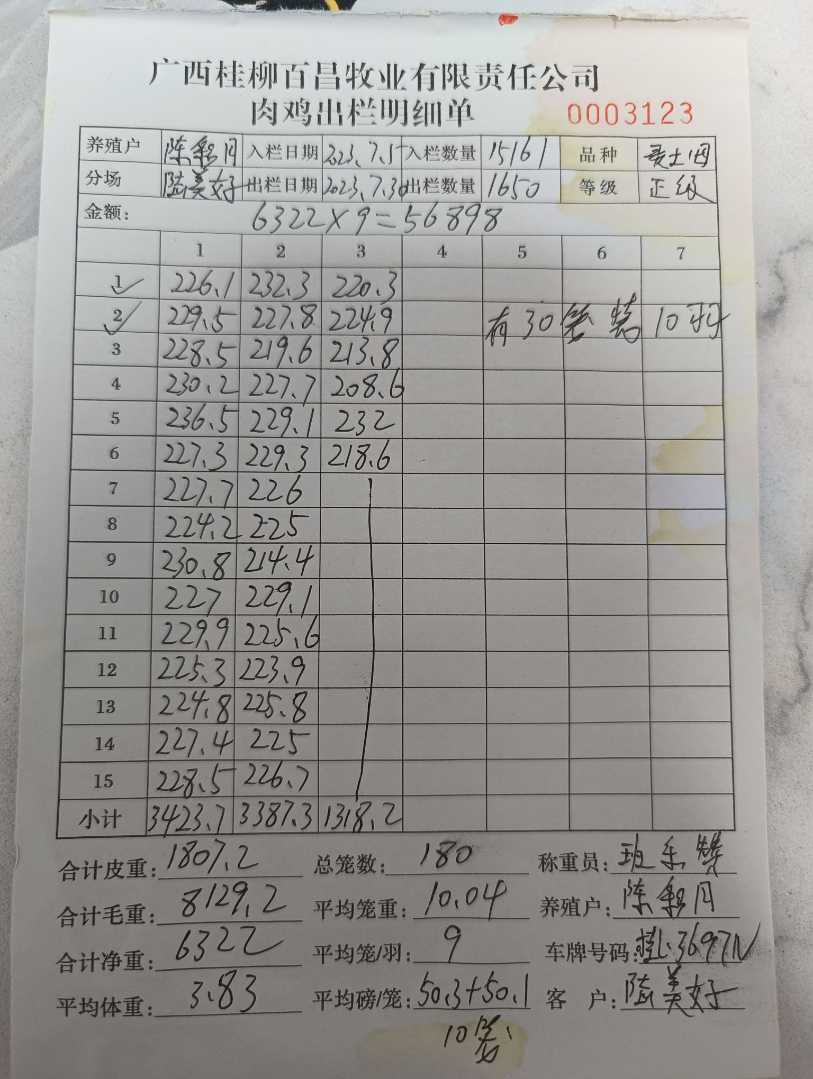 广西桂柳百昌牧业有限责任公司
肉鸡出栏明细单 0003123
养殖户 陈 月 入栏日期 2023.7.15 入栏数量 15161 品种
分场 陆美好 出栏日期 2023.7.30 出栏数量 1650 等级 正级
金额: 6322×9=56898
1 2 3 4 5 6 7
1 226.1 232.3 220.3
2 229.5 227.8 224.9 有30笼装10羽
3 228.5 219.6 213.8
4 230.2 227.7 208.6
5 236.5 229.1 232
6 227.3 229.3 218.6
7 227.7 226
8 224.2 225
9 230.8 214.4
10 227 229.1
11 229.9 225.6
12 225.3 223.9
13 224.8 225.8
14 227.4 225
15 228.5 226.7
小计 3423.7 3387.3 1318.2
合计皮重: 1807.2 总笼数: 180 称重员: 班
合计毛重: 8129.2 平均笼重: 10.04 养殖户: 陈 月
合计净重: 6322 平均笼/羽: 9 车牌号码: 桂L·3697N
平均体重: 3.83 平均磅/笼: 50.3+50.1 客 户: 陆美好
10笼